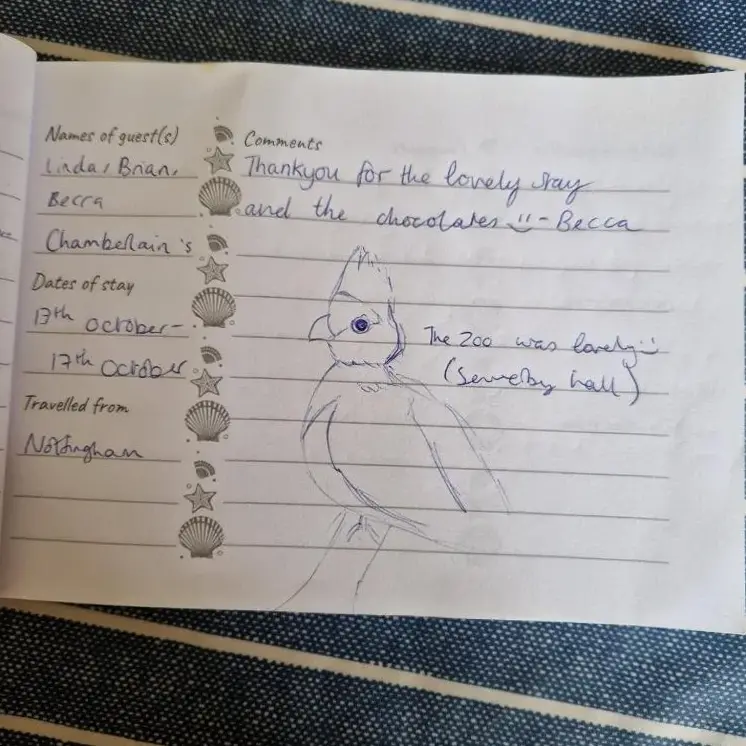 Names of guest(s)
Linda, Brian,
Becca
Chamberlain's
Dates of stay
13th October -
17th October
Travelled from
Nottingham
Comments
Thankyou for the lovely stay
and the chocolates :) - Becca
The zoo was lovely :)
(Sewerby hall)